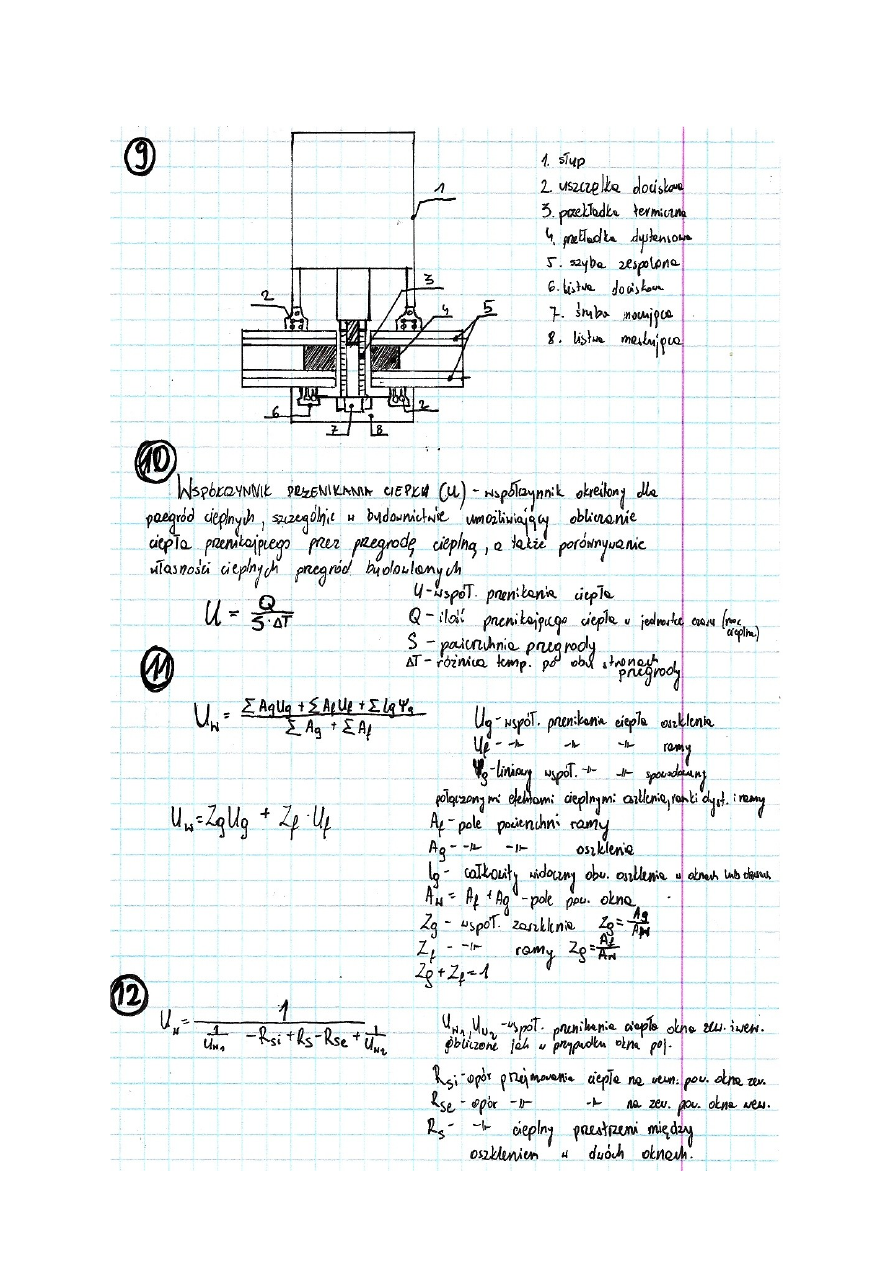 9
1. słup
2. uszczelka dociskowa
3. przekładka termiczna
4. przekładka dystansowa
5. szyba zespolona
6. listwa dociskowa
7. śruba mocująca
8. listwa maskująca
1
2
3
4
5
6
7
8
2
10
WSPÓŁCZYNNIK PRZENIKANIA CIEPŁA (U) - współczynnik określony dla
przegród cieplnych, szczególnie w budownictwie umożliwiający obliczanie
ciepła przenikającego przez przegrodę cieplną, a także porównywanie
własności cieplnych przegród budowlanych
U = Q / S · ΔT
U - współ. przenikania ciepła
Q - ilość przenikającego ciepła w jednostce czasu (moc cieplna)
S - powierzchnia przegrody
ΔT - różnica temp. po obu stronach
przegrody
11
U_W = ΣAgUg + ΣAfUf + ΣlgΨg / ΣAg + ΣAf
Ug - współ. przenikania ciepła oszklenia
Uf - -||- -||- -||- ramy
Ψg - liniowy współ. -||- -||- spowodowany
połączonymi efektami cieplnymi oszklenia, ramki dyst. i ramy
U_W = ZgUg + Zf · Uf
Af - pole powierzchni ramy
Ag - -||- -||- oszklenia
lg - całkowity widoczny obw. oszklenia w oknach lub drzwiach
A_W = Af + Ag - pole pow. okna
Zg - współ. zaszklenia Zg = Ag / A_W
Zf - -||- ramy Zg = Af / A_W
Zg + Zf = 1
12
U_W = 1 / 1/U_W1 - Rsi + Rs - Rse + 1/U_W2
U_W1, U_W2 - współ. przenikania ciepła okna zew. i wew.
obliczone jak w przypadku okna poj.
Rsi - opór przejmowania ciepła na wewn. pow. okna zew.
Rse - opór -||- -||- na zew. pow. okna wew.
Rs - -||- cieplny przestrzeni między
oszkleniem w dwóch oknach.